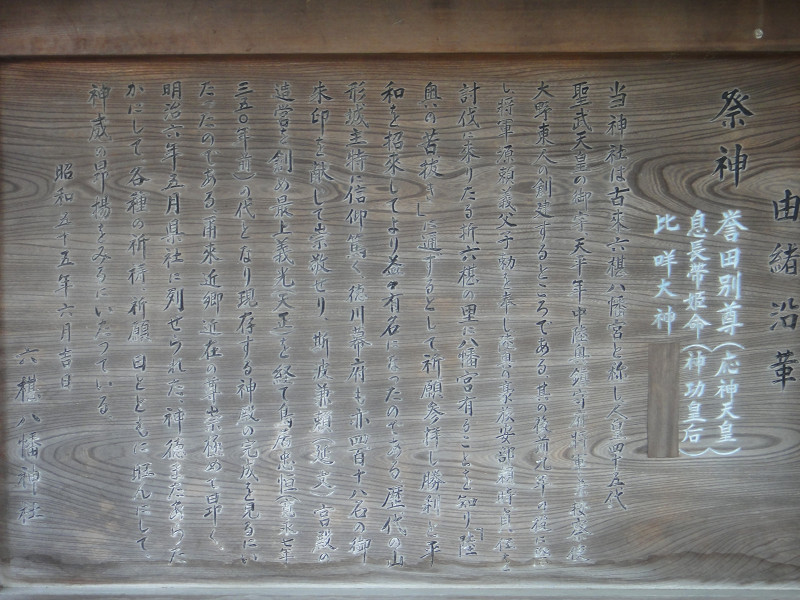 由緒沿革
祭神 誉田別尊(応神天皇)
息長帯姫命(神功皇后)
比咩大神
当神社は古来六椹八幡宮と称し人皇四十五代
聖武天皇の御宇天平年中陸奥鎮守府将軍
大野東人の創建するところである其の後前九年の役に
し将軍源頼義父子勅を奉じ安部頼時貞任を
討伐に来りたる折六椹の里に八幡宮有ることを知り陸
奥の苦抜きに通ずるとして祈願参拝し勝利と平
和を招来してより益々有名になったのである歴代の山
形城主特に信仰篤く徳川幕府も亦四百十八石の御
朱印を献して崇敬せり、斯波兼頼(延文)宮殿の
造営を創め最上義光天正を経て鳥居忠恒(寛永七年
三五〇年前)の代となり現存する神殿の完成を見るにい
たったのである爾来近郷近在の尊崇極めて昂く
明治六年五月県社に列せられた、神徳まだあらた
かにして各種の祈祷祈願日とともに賑んにして
神威の昂揚をみるにいたっている。
昭和五十五年六月吉日
六椹八幡神社